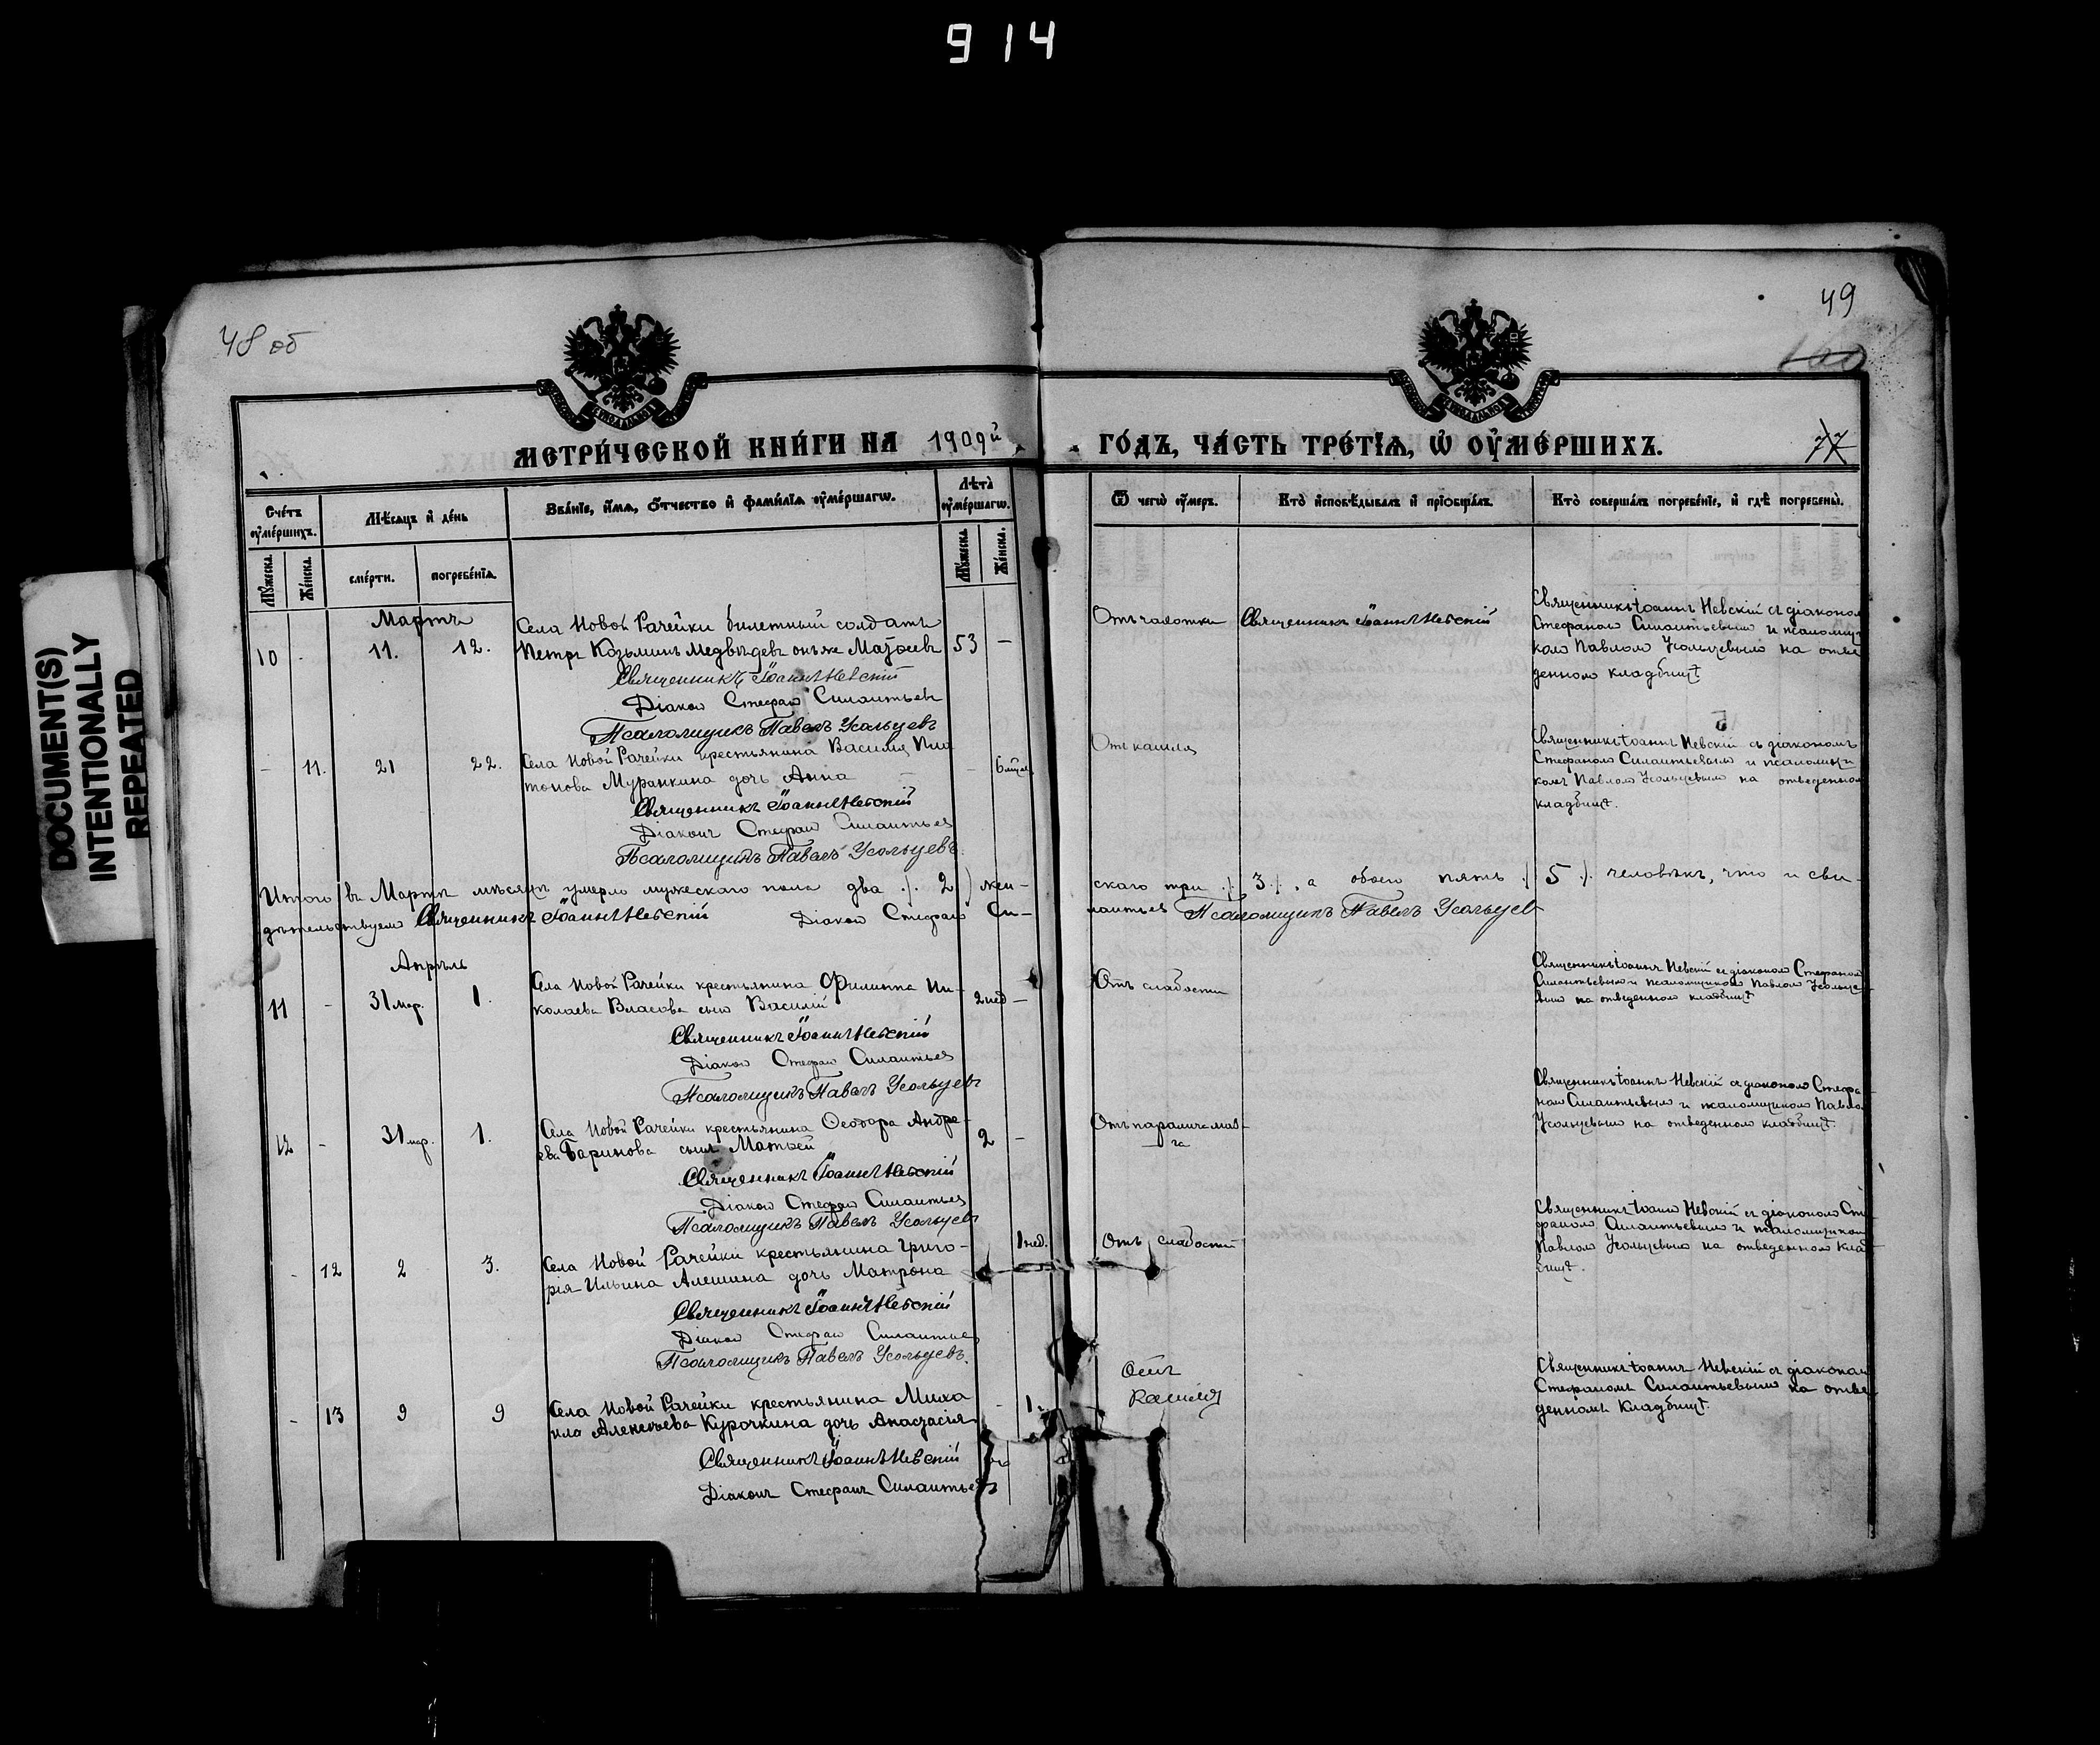 914
DOCUMENT(S)
INTENTIONALLY
REPEATED
48 об
49
МЕТРИ́ЧЕСКОЙ КНИ́ГИ НА 1909й ГО́ДЪ, ЧА́СТЬ ТРЕ́ТІѦ, Ѡ҆ ОУ҆МЕ́РШИХЪ.
77
Сче́тъ оу҆ме́ршихъ.
Мѣ́сѧцъ и҆ де́нь
Зва́нїе, и҆́мѧ, ѻ҆́тчество и҆ фами́лїѧ оу҆ме́ршагѡ.
Лѣ́та оу҆ме́ршагѡ.
Ѿ чегѡ̀ оу҆́меръ.
Кто̀ и҆сповѣ́дывалъ и҆ прїобща́лъ.
Кто̀ соверша́лъ погребе́нїе, и҆ гдѣ̀ погребены̀.
Мꙋ́жеска.
Же́нска.
сме́рти.
погребе́нїѧ.
Мꙋ́жеска.
Же́нска.
Мартъ
10 - 11. 12. Села Новой Рачейки билетный солдатъ
Петръ Козьминъ Медвѣдевъ онъ же 53 —
Священникъ Іоаннъ Невскій
Діаконъ Стефанъ Силантьевъ
Псаломщикъ Павелъ Усольцевъ
Отъ чахотки
Священникъ Іоаннъ Невскій
Священникъ Іоаннъ Невскій съ діакономъ
Стефаномъ Силантьевымъ и псаломщи
комъ Павломъ Усольцевымъ на отве
денномъ кладбищѣ
- 11. 21 22. Села Новой Рачейки крестьянина Василія Пла
тонова Муранкина дочь Анна — 6 мѣс.
Священникъ Іоаннъ Невскій
Діаконъ Стефанъ Силантьевъ
Псаломщикъ Павелъ Усольцевъ.
Отъ кашля
Священникъ Іоаннъ Невскій съ діакономъ
Стефаномъ Силантьевымъ и псаломщи
комъ Павломъ Усольцевымъ на отведенномъ
кладбищѣ.
Итого въ Мартѣ мѣсяцѣ умерло мужескаго пола два ./. 2 ) жен-скаго три ./. 3 ./., а обоего пять ./. 5 ./. человѣкъ, что и сви-
дѣтельствуемъ Священникъ Іоаннъ Невскій Діаконъ Стефанъ Си-лантьевъ Псаломщикъ Павелъ Усольцевъ
Апрѣль
11 - 31 мар. 1. Села Новой Рачейки крестьянина Филиппа Ни-
колаева Власова сынъ Василій 2 нед —
Священникъ Іоаннъ Невскій
Діаконъ Стефанъ Силантьевъ
Псаломщикъ Павелъ Усольцевъ
Отъ слабости
Священникъ Іоаннъ Невскій съ діакономъ Стефаномъ
Силантьевымъ и псаломщикомъ Павломъ Усольце-
вымъ на отведенномъ кладбищѣ
12 - 31 мар. 1. Села Новой Рачейки крестьянина Ѳеодора Андре-
ева Баринова сынъ Матвей 2 —
Священникъ Іоаннъ Невскій
Діаконъ Стефанъ Силантьевъ
Псаломщикъ Павелъ Усольцевъ
Отъ паралича моз-
га
Священникъ Іоаннъ Невскій съ діакономъ Стефа-
номъ Силантьевымъ и псаломщикомъ Павломъ
Усольцевымъ на отведенномъ кладбищѣ.
- 12 2 3. Села Новой Рачейки крестьянина Григо-
рія Ильина Алешина дочь Матрона 1 нед.
Священникъ Іоаннъ Невскій
Діаконъ Стефанъ Силантьевъ
Псаломщикъ Павелъ Усольцевъ.
Отъ слабости
Священникъ Іоаннъ Невскій съ діакономъ Сте
фаномъ Силантьевымъ и псаломщикомъ
Павломъ Усольцевымъ на отведенномъ клад
бищѣ.
- 13 9 9 Села Новой Рачейки крестьянина Миха
ила Алексѣева Курочкина дочь Анастасія - 1.
Священникъ Іоаннъ Невскій
Діаконъ Стефанъ Силантьевъ
Отъ
кашля
Священникъ Іоаннъ Невскій съ діакономъ
Стефаномъ Силантьевымъ на отве
денномъ кладбищѣ.